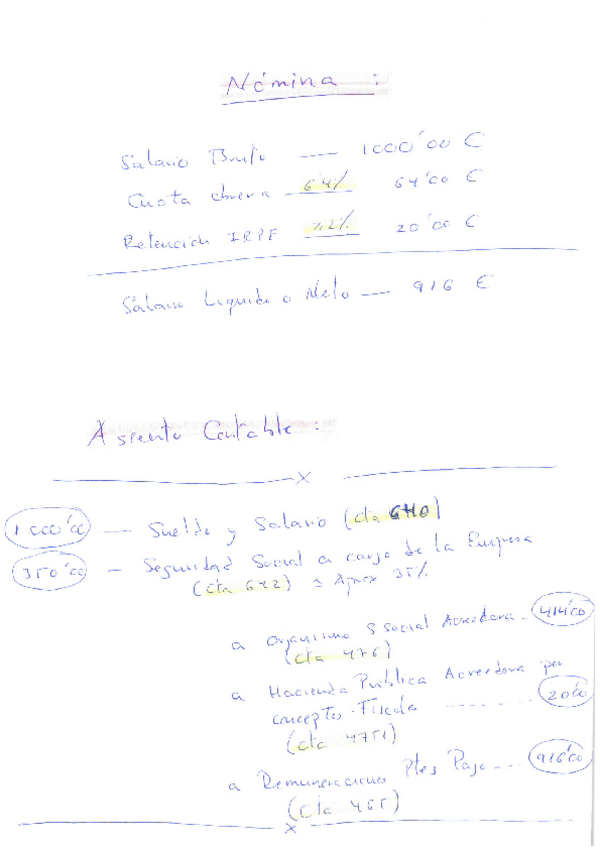 Nómina :
Salario Bruto — 1000'00 €
Cuota obrera 6'4% 64'00 €
Retención IRPF 2% 20'00 €
Salario Liquido o Neto — 916 €
Asiento Contable :
X
1000'00 — Sueldo y Salario (cta 640)
350'00 — Seguridad Social a cargo de la Empresa
(cta 642) = Aprox 35%
a Organismo S social Acreedora - 414'00
(cta 476)
a Hacienda Publica Acreedora por
concepto Fiscal ------ 20'00
(cta 4751)
a Remuneraciones Ptes Pago --- 916'00
(cta 465)
X